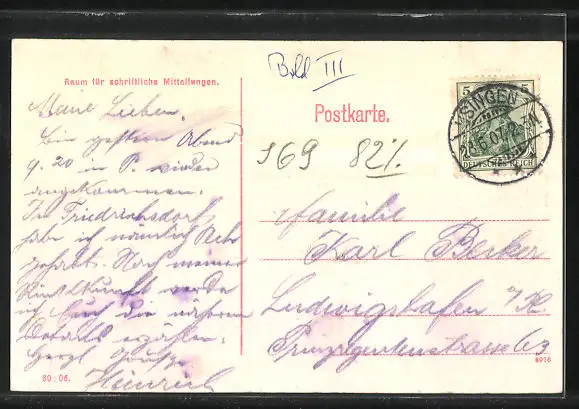 Bild III
Raum für schriftliche Mitteilungen.
Meine Lieben.
Bin gestern Abend
9.20 in P. wieder
angekommen.
In Friedrichsdorf
habe ich nämlich Pech
gehabt. Nach meiner
Rückkunft werde
ich Euch die näheren
Details erzählen.
Herzl. Grüße
Heinrich
60 : 06.
Postkarte.
5 5
DEUTSCHES REICH
USINGEN
28.6.07. 2-3N.
S69 82%
Familie
Karl Becker
Ludwigshafen a/R.
Prinzregentenstrasse 63
8976